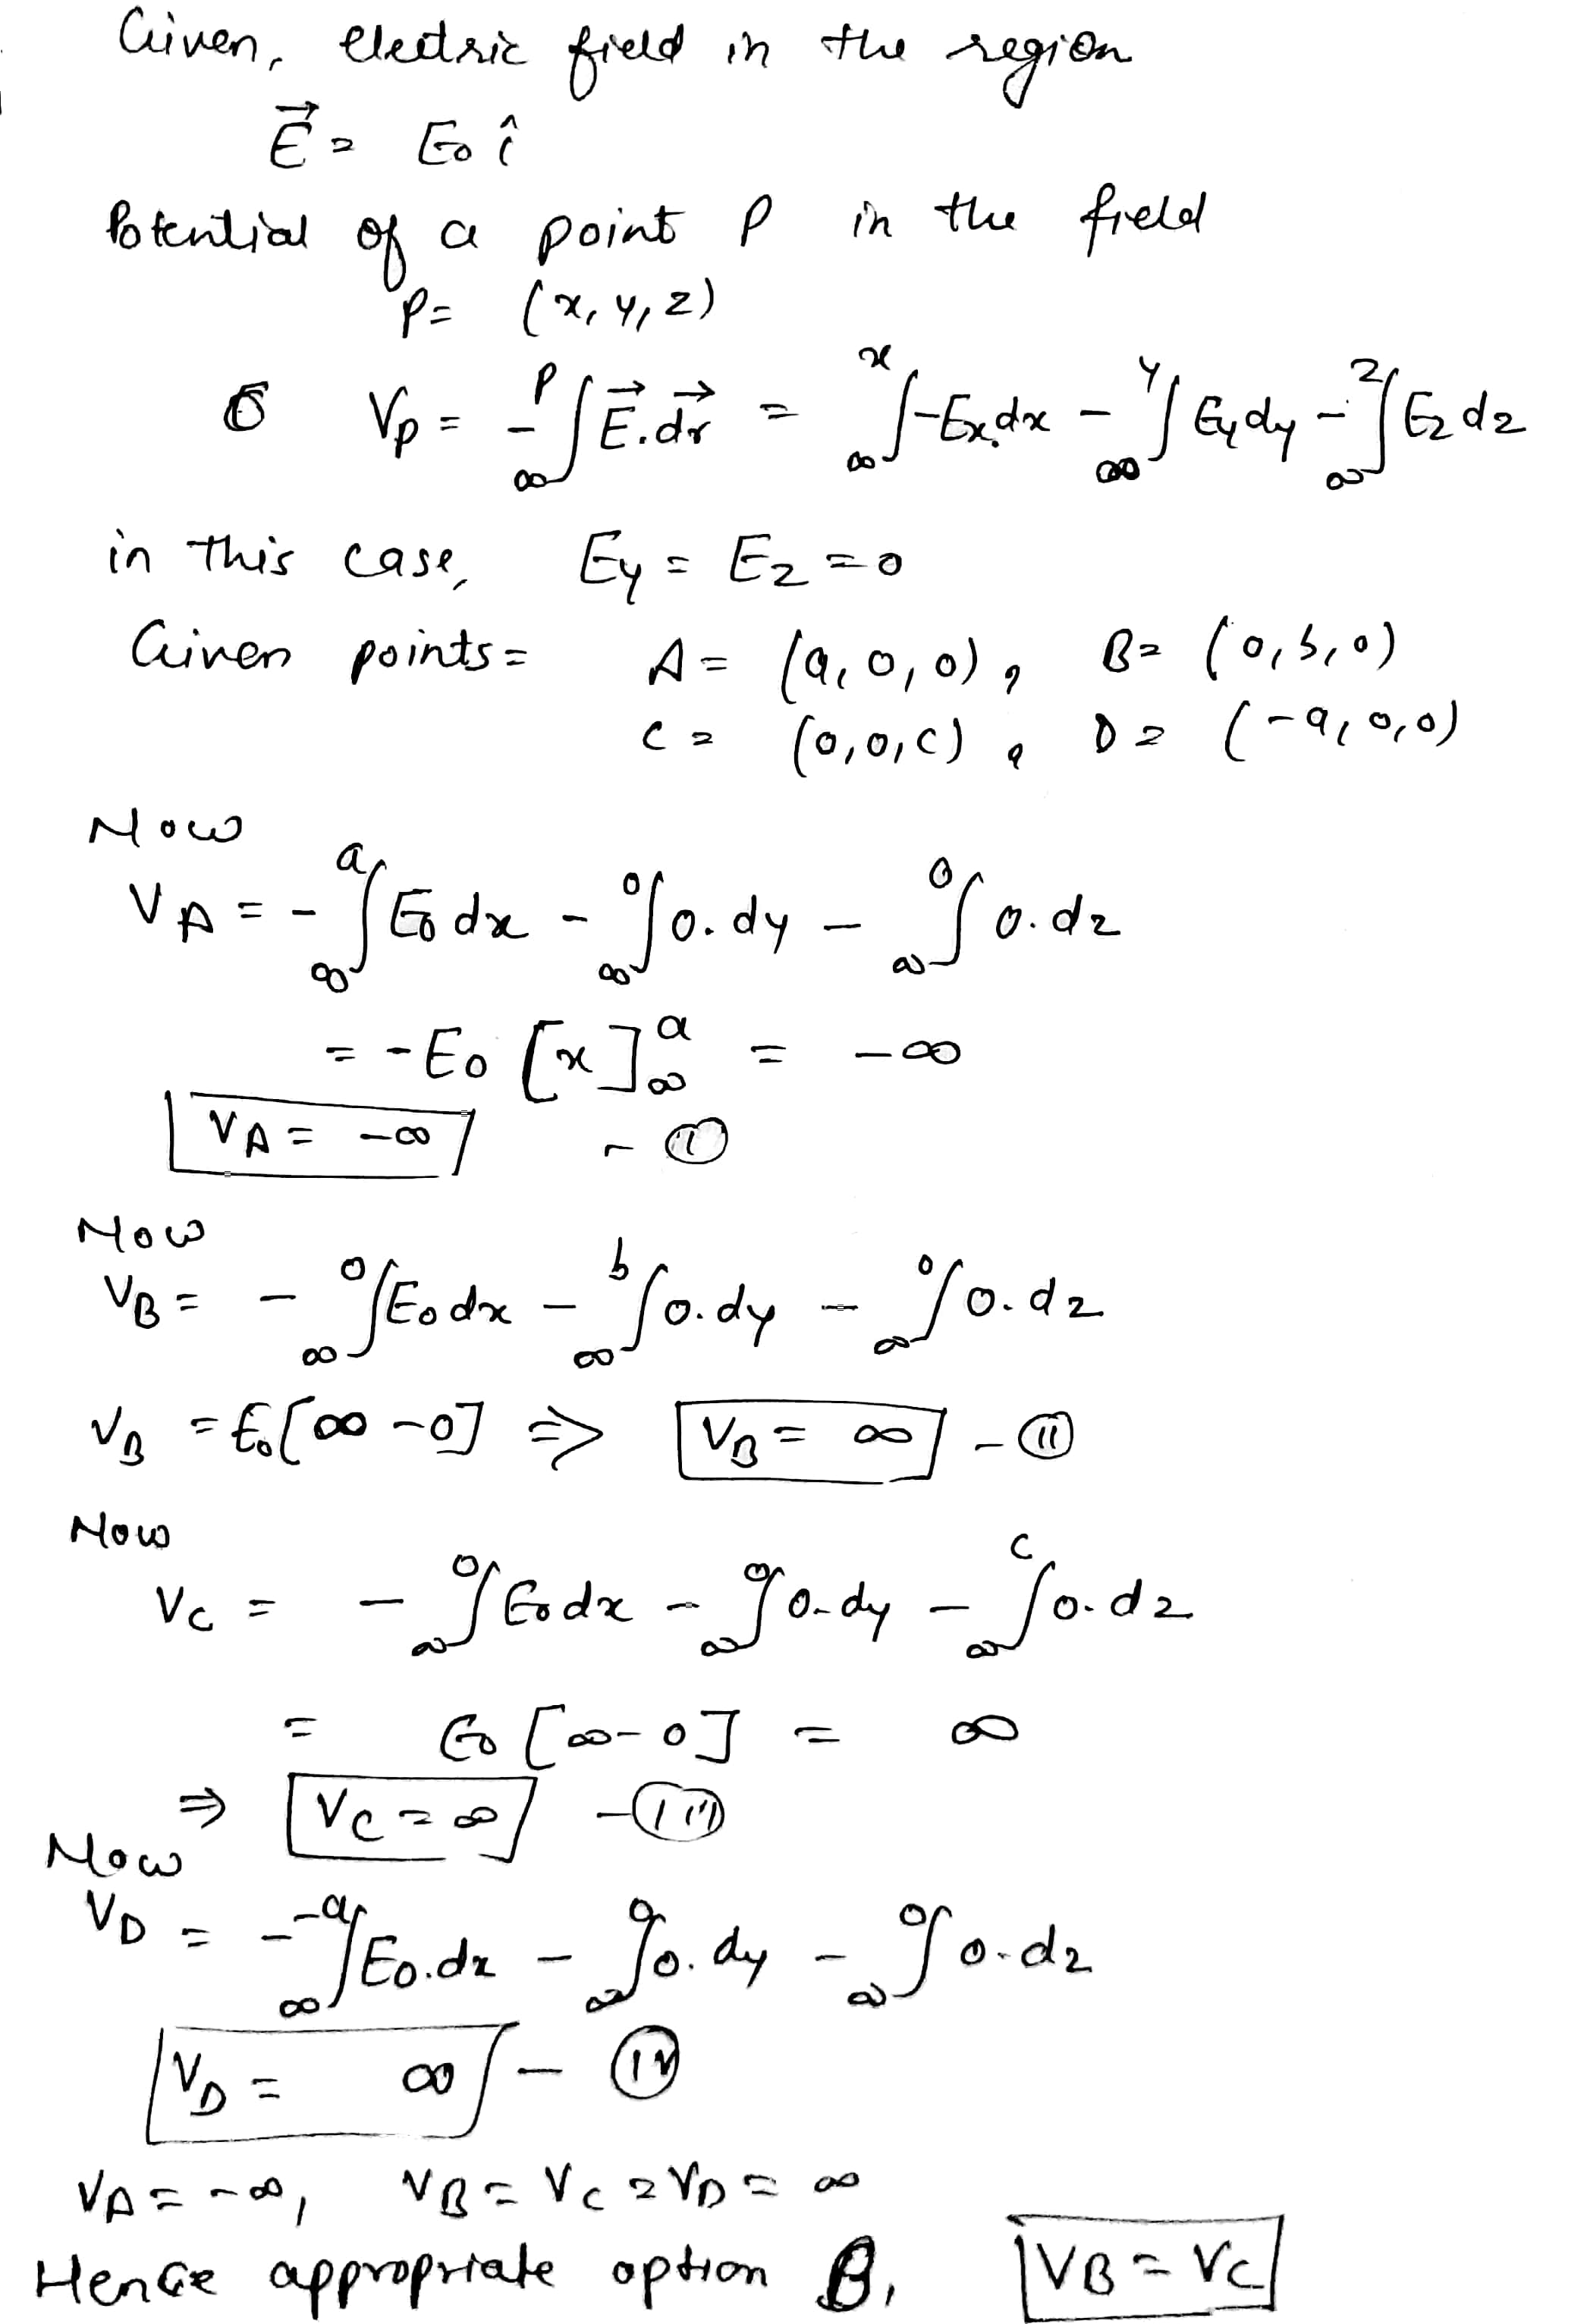 Given, electric field in the region
E⃗ = E₀ î
Potential of a point P in the field
P = (x, y, z)
V_P = -∫_∞^P E⃗.dr⃗ = ∫_∞^x -Eₓ.dx - ∫_∞^y E_y dy - ∫_∞^z E_z dz
in this case, E_y = E_z = 0
Given points = A = (a,0,0), B = (0,b,0)
C = (0,0,c), D = (-a,0,0)
Now
V_A = -∫_∞^a E₀ dx - ∫_∞^0 0.dy - ∫_∞^0 0.dz
= -E₀ [x]_∞^a = -∞
V_A = -∞ - (I)
Now
V_B = -∫_∞^0 E₀ dx - ∫_∞^b 0.dy - ∫_∞^0 0.dz
V_B = E₀[∞ - 0] ⇒ V_B = ∞ - (II)
Now
V_C = -∫_∞^0 E₀ dx - ∫_∞^0 0.dy - ∫_∞^c 0.dz
= E₀ [∞ - 0] = ∞
⇒ V_C = ∞ - (III)
Now
V_D = -∫_∞^-a E₀.dx - ∫_∞^0 0.dy - ∫_∞^0 0.dz
V_D = ∞ - (IV)
V_A = -∞, V_B = V_C = V_D = ∞
Hence appropriate option B, V_B = V_C